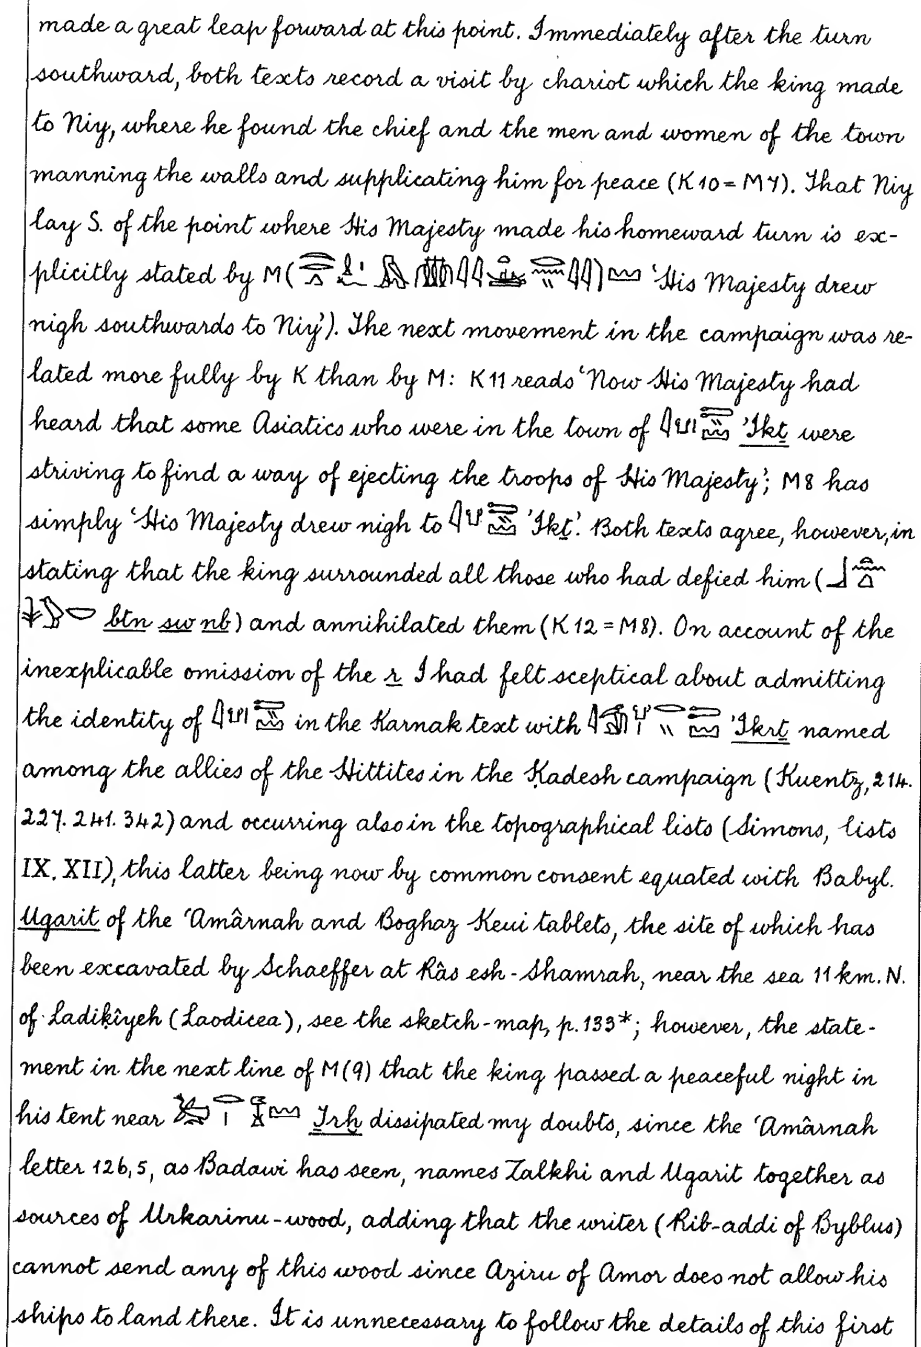 made a great leap forward at this point. Immediately after the turn
southward, both texts record a visit by chariot which the king made
to Niy, where he found the chief and the men and women of the town
manning the walls and supplicating him for peace (K10 = M7). That Niy
lay S. of the point where His Majesty made his homeward turn is ex-
plicitly stated by M ( ) 'His Majesty drew
nigh southwards to Niy'). The next movement in the campaign was re-
lated more fully by K than by M: K11 reads 'Now His Majesty had
heard that some Asiatics who were in the town of 'Ikṯ were
striving to find a way of ejecting the troops of His Majesty'; M8 has
simply 'His Majesty drew nigh to 'Ikṯ'. Both texts agree, however, in
stating that the king surrounded all those who had defied him (
btn sw nb) and annihilated them (K12 = M8). On account of the
inexplicable omission of the r I had felt sceptical about admitting
the identity of in the Karnak text with 'Ikrṯ named
among the allies of the Hittites in the Ḳadesh campaign (Kuentz, 214.
227. 241. 342) and occurring also in the topographical lists (Simons, lists
IX, XII), this latter being now by common consent equated with Babyl.
Ugarit of the 'Amârnah and Boghaz Keui tablets, the site of which has
been excavated by Schaeffer at Râs esh-Shamrah, near the sea 11 km. N.
of Ladiḳîyeh (Laodicea), see the sketch-map, p. 133*; however, the state-
ment in the next line of M(9) that the king passed a peaceful night in
his tent near Ṯrḫ dissipated my doubts, since the 'Amârnah
letter 126, 5, as Badawi has seen, names Zalkhi and Ugarit together as
sources of Urkarinu-wood, adding that the writer (Rib-addi of Byblus)
cannot send any of this wood since Aziru of Amor does not allow his
ships to land there. It is unnecessary to follow the details of this first